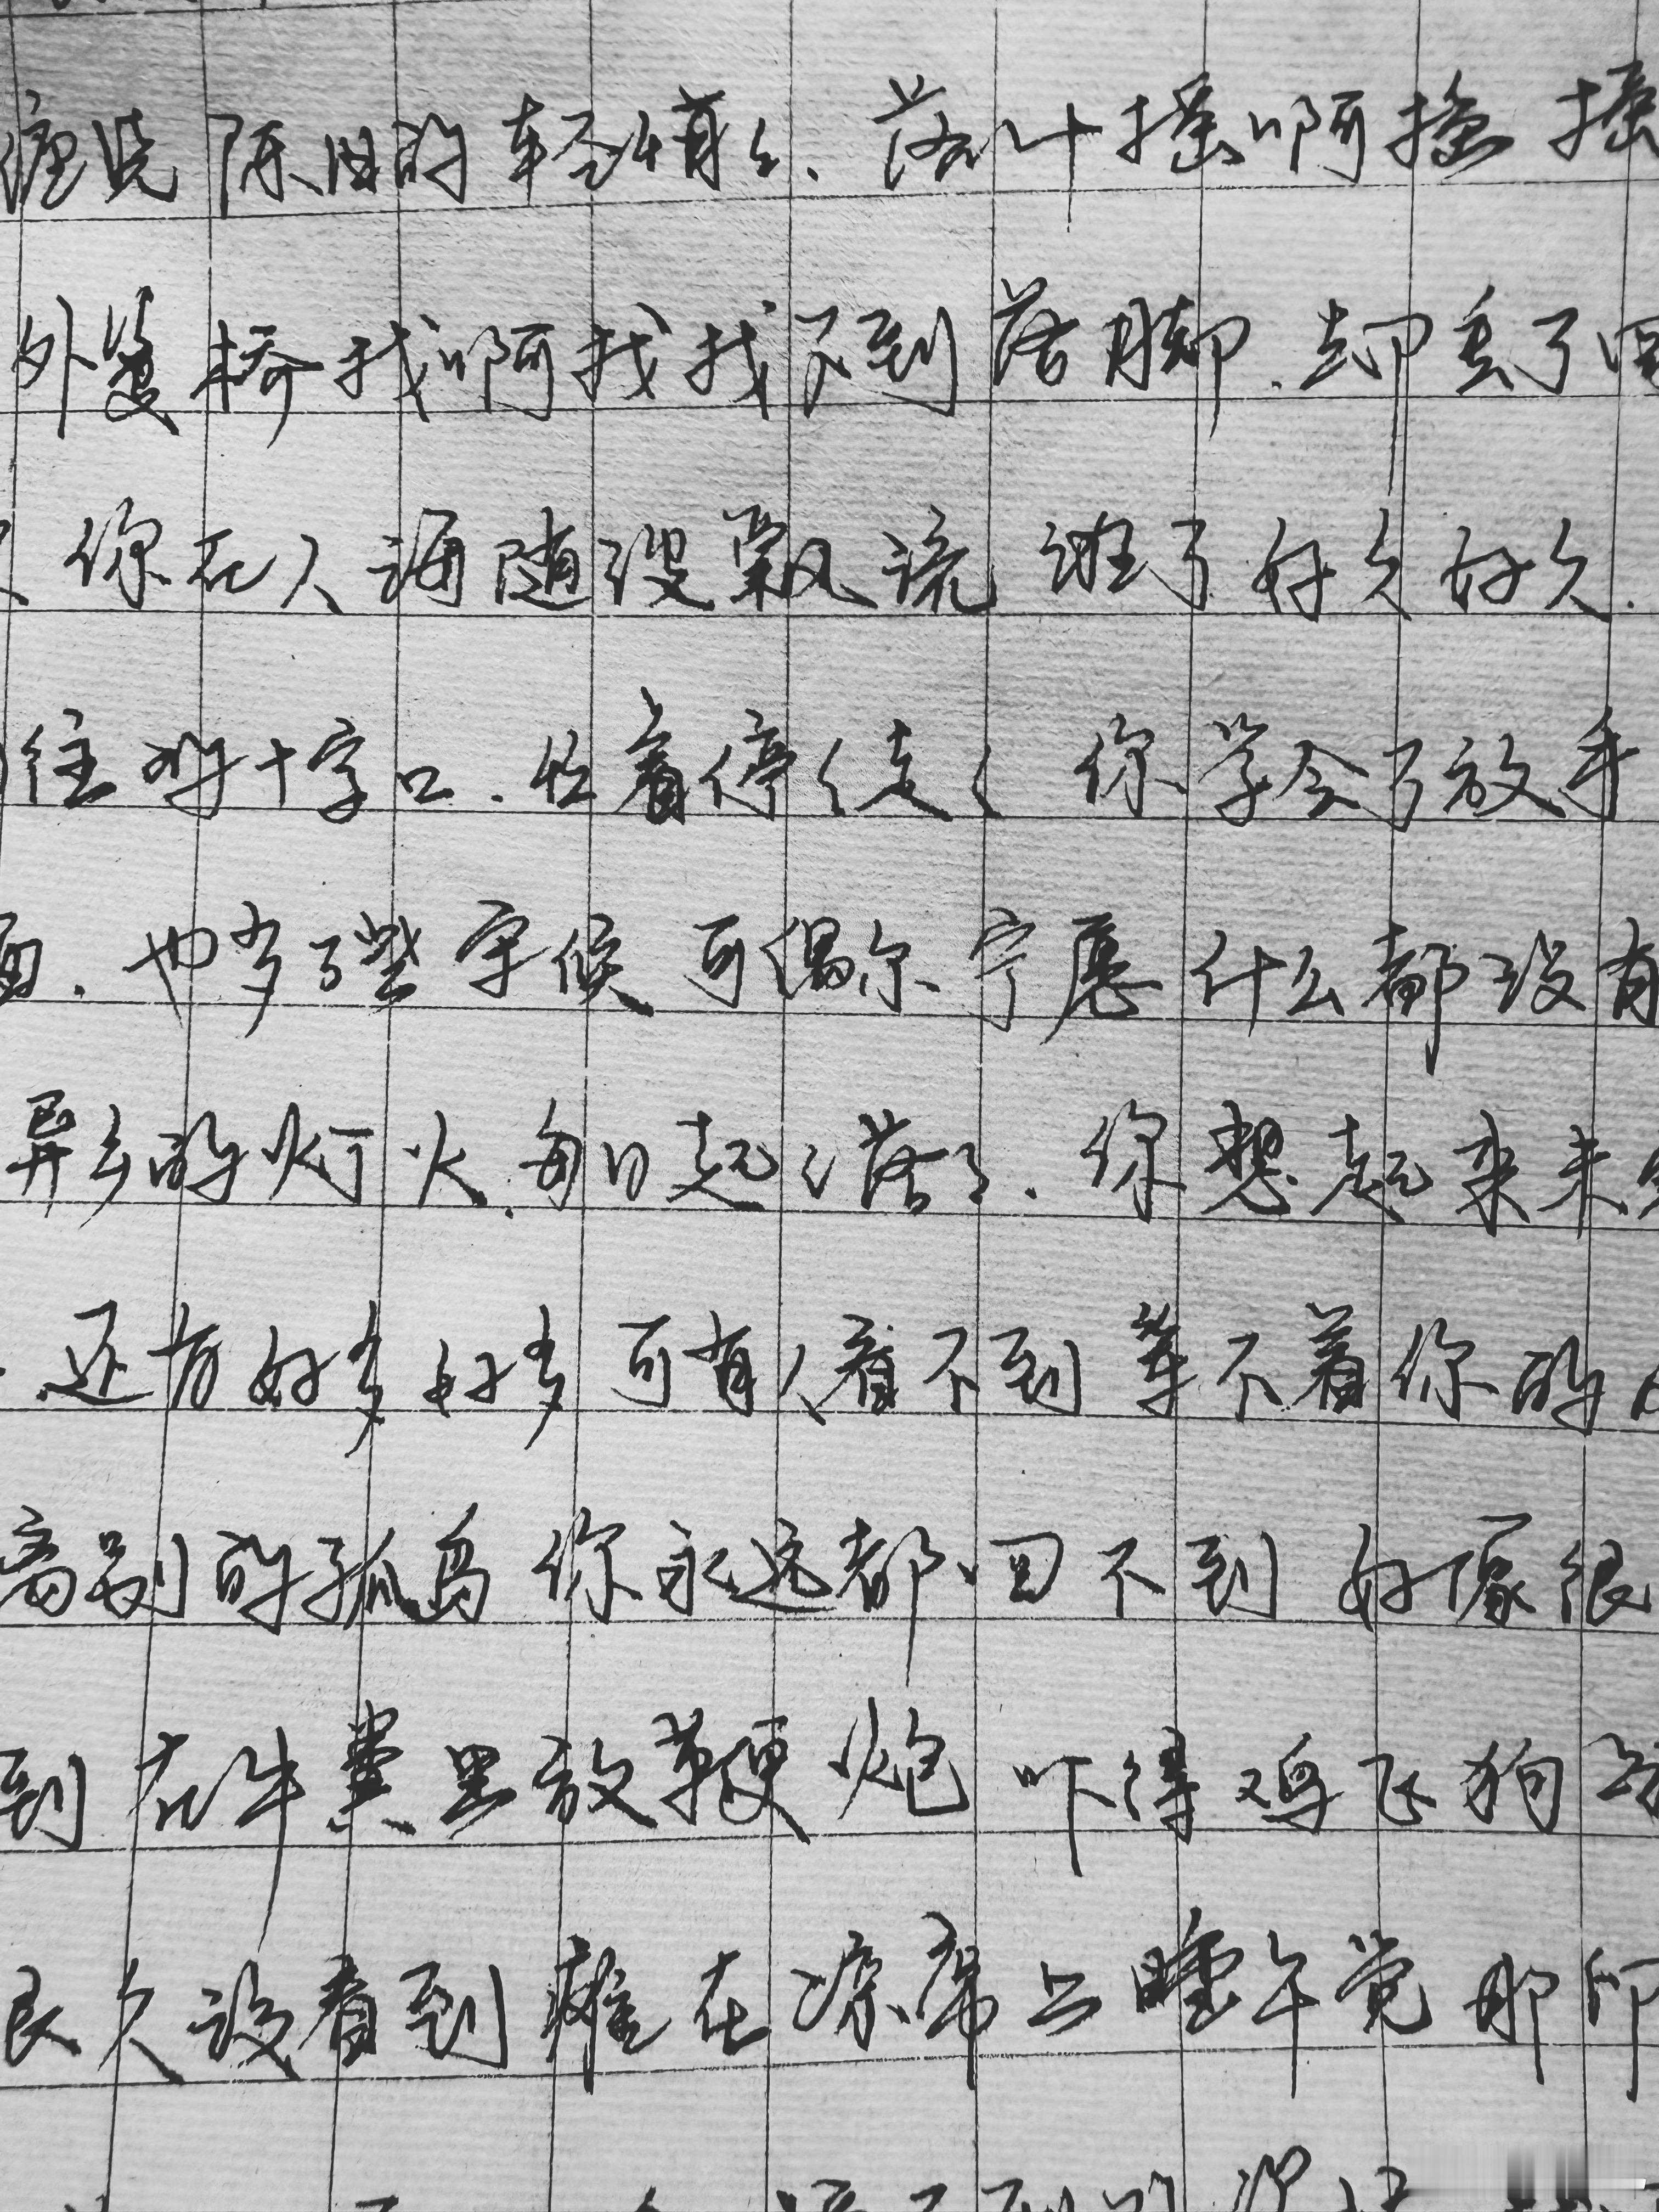 陈旧的轻惰〻.落叶摇啊摇 摇
外婆桥我啊找找不到落脚.却丢了回
你在人海随没飘流 浪了好久好久.
往的十字口.忙着停〻走〻 你学会了放手
面.也多了些守候 可偶尔宁愿什么都没有
异乡的灯火.每日起〻落〻.你想起来来
.还有好多好多 可有人看不到 等不着你的
离别的孤岛 你永远都回不到 好像很
到 在牛粪里放鞭炮 吓得鸡飞狗
久没看到 瘫在凉席上睡午觉 那